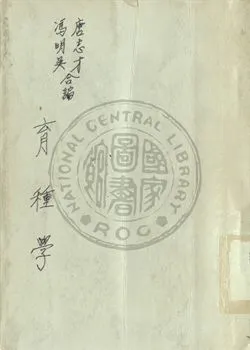 唐志才
馮明吳合編
育種學
NATIONAL CENTRAL LIBRARY
國家圖書館
ROC